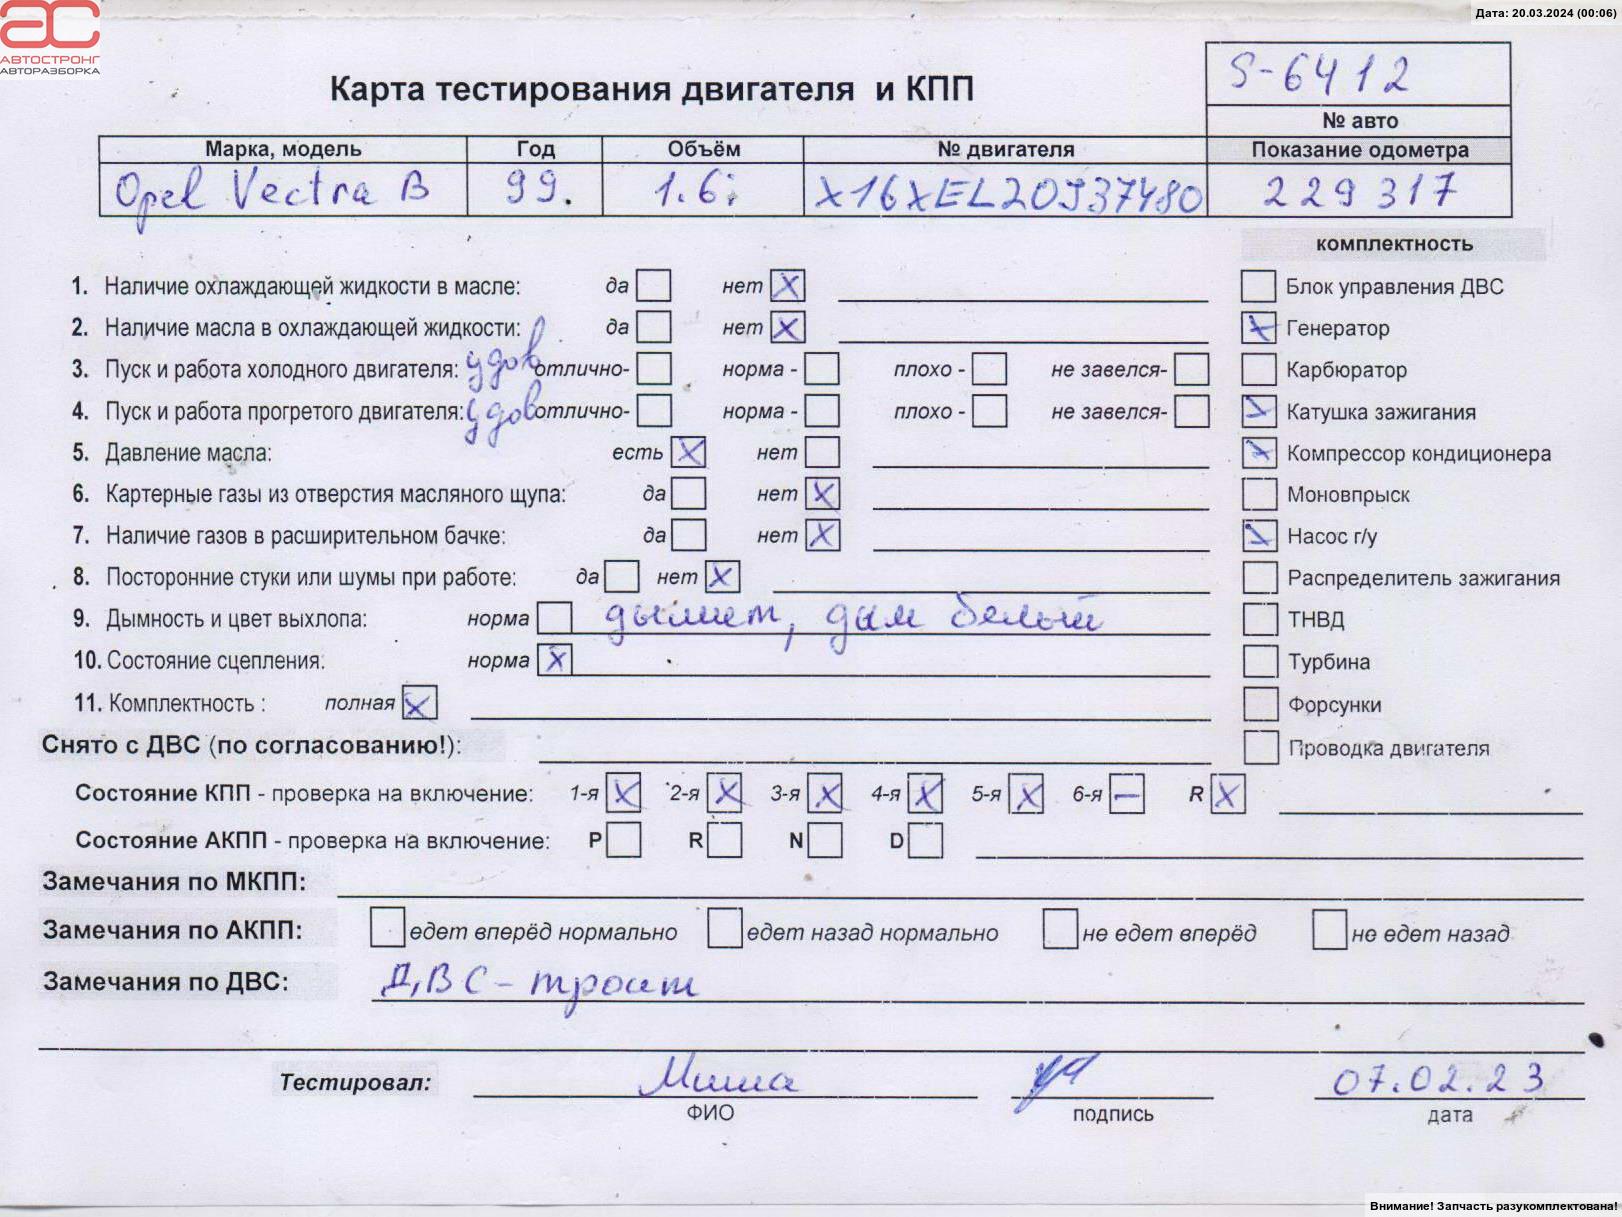 АС
АВТОСТРОНГ
АВТОРАЗБОРКА
Дата: 20.03.2024 (00:06)
S-6412
Карта тестирования двигателя и КПП
№ авто
Марка, модель Год Объём № двигателя Показание одометра
Opel Vectra B 99. 1.6i X16XEL20J37480 229317
комплектность
1. Наличие охлаждающей жидкости в масле: да нет X Блок управления ДВС
2. Наличие масла в охлаждающей жидкости: да нет X Генератор
3. Пуск и работа холодного двигателя: удов отлично- норма - плохо - не завелся- Карбюратор
4. Пуск и работа прогретого двигателя: удов отлично- норма - плохо - не завелся- Катушка зажигания
5. Давление масла: есть X нет Компрессор кондиционера
6. Картерные газы из отверстия масляного щупа: да нет X Моновпрыск
7. Наличие газов в расширительном бачке: да нет X Насос г/у
8. Посторонние стуки или шумы при работе: да нет X Распределитель зажигания
9. Дымность и цвет выхлопа: норма дымит, дым белый ТНВД
10. Состояние сцепления: норма X Турбина
11. Комплектность : полная X Форсунки
Снято с ДВС (по согласованию!): Проводка двигателя
Состояние КПП - проверка на включение: 1-я X 2-я X 3-я X 4-я X 5-я X 6-я — R X
Состояние АКПП - проверка на включение: P R N D
Замечания по МКПП:
Замечания по АКПП: едет вперёд нормально едет назад нормально не едет вперёд не едет назад
Замечания по ДВС: ДВС - троит
Тестировал: Миша 07.02.23
ФИО подпись дата
Внимание! Запчасть разукомплектована!